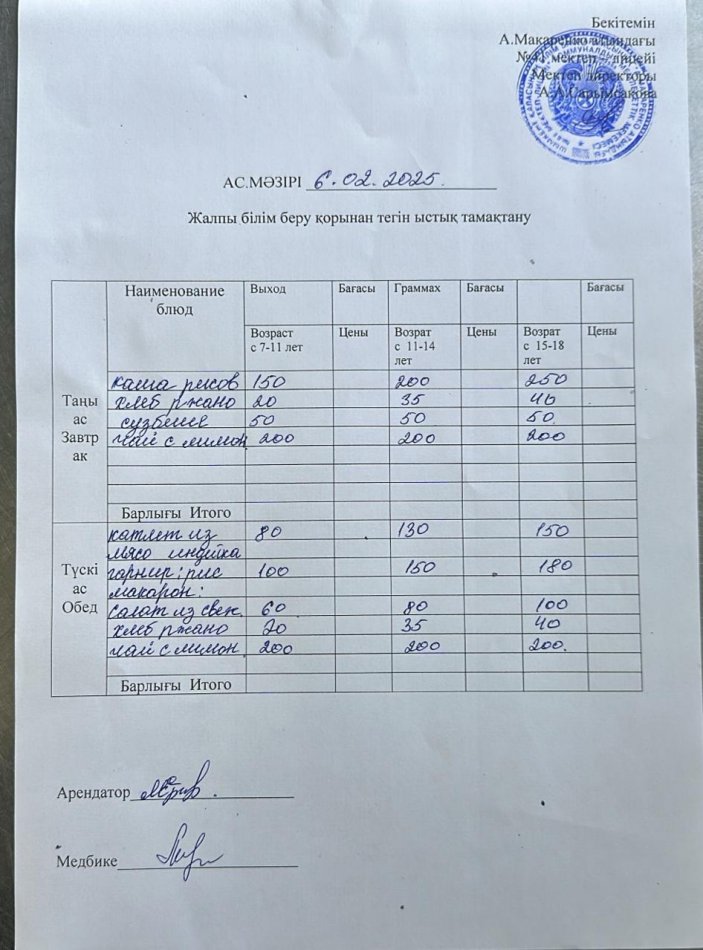 Бекітемін
А.Макаренко атындағы
№41 мектеп – лицейі
Мектеп директоры
А.А.Сарымсакова
АС.МӘЗІРІ 6.02.2025
Жалпы білім беру қорынан тегін ыстық тамақтану
Наименование блюд Выход Бағасы Граммах Бағасы Бағасы
Возраст с 7-11 лет Цены Возрат с 11-14 лет Цены Возрат с 15-18 лет Цены
Таңы ас Завтр ак
каша рисов 150 200 250
хлеб ржано 20 35 40
сузбеше 50 50 50
чай с лимон 200 200 200
Барлығы Итого
Түскі ас Обед
катлет из 80 130 150
мясо индика
гарнир: рис 100 150 180
макарон:
салат из свеж 60 80 100
хлеб ржано 20 35 40
чай с лимон 200 200 200.
Барлығы Итого
Арендатор
Медбике